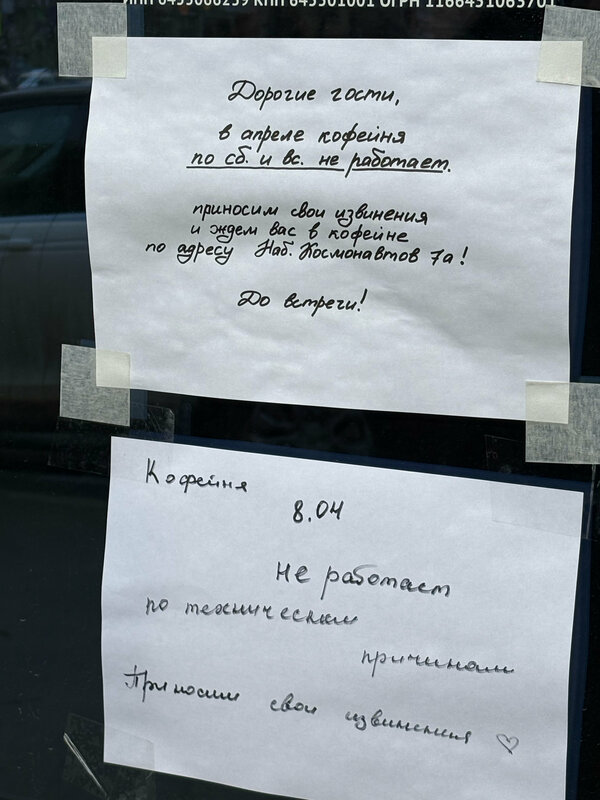 ИНН 6455066259 КПП 645501001 ОГРН 1166451063701
Дорогие гости,
в апреле кофейня
по сб. и вс. не работает.
приносим свои извинения
и ждем вас в кофейне
по адресу Наб. Космонавтов 7а!
До встречи!
Кофейня
8.04
не работает
по техническим
причинам
Приносим свои извинения ♡